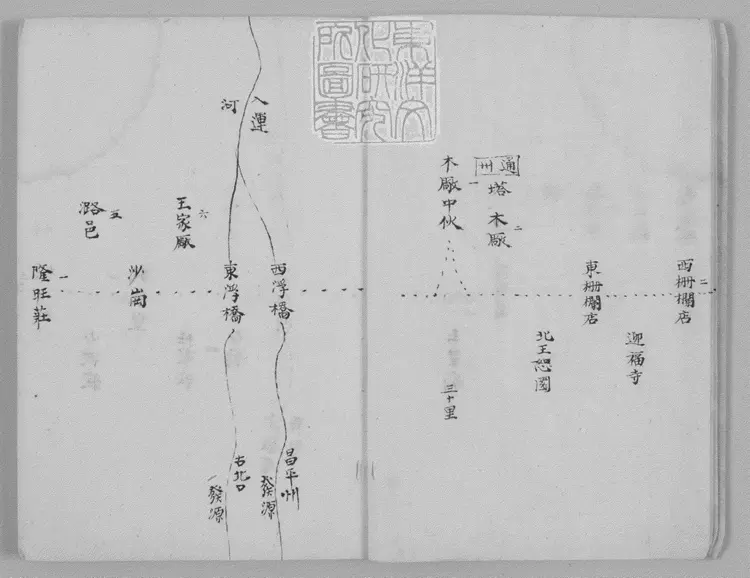 東洋文
化研究
所圖書
二
西柵欄店
迎福寺
東柵欄店
北王恕園
通州
塔
二
木厰
一
木厰中伙
三十里
入運
河
西浮橋
昌平州
發源
東浮橋
古北口
一發源
六
王家厰
沙崗
五
潞邑
一
隆旺莊